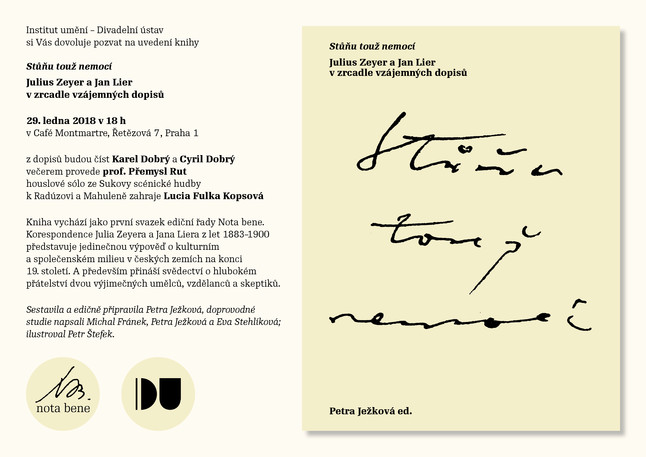 Institut umění – Divadelní ústav
si Vás dovoluje pozvat na uvedení knihy
Stůňu touž nemocí
Julius Zeyer a Jan Lier
v zrcadle vzájemných dopisů
29. ledna 2018 v 18 h
v Café Montmartre, Řetězová 7, Praha 1
z dopisů budou číst Karel Dobrý a Cyril Dobrý
večerem provede prof. Přemysl Rut
houslové sólo ze Sukovy scénické hudby
k Radúzovi a Mahuleně zahraje Lucia Fulka Kopsová
Kniha vychází jako první svazek ediční řady Nota bene.
Korespondence Julia Zeyera a Jana Liera z let 1883–1900
představuje jedinečnou výpověď o kulturním
a společenském milieu v českých zemích na konci
19. století. A především přináší svědectví o hlubokém
přátelství dvou výjimečných umělců, vzdělanců a skeptiků.
Sestavila a edičně připravila Petra Ježková, doprovodné
studie napsali Michal Fránek, Petra Ježková a Eva Stehlíková;
ilustroval Petr Štefek.
NB.
nota bene
DU
Stůňu touž nemocí
Julius Zeyer a Jan Lier
v zrcadle vzájemných dopisů
Stůňu
touž
nemocí
Petra Ježková ed.